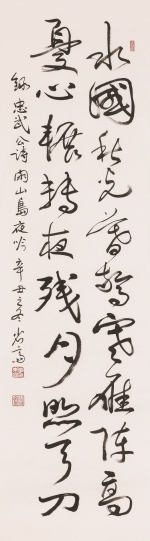 水國秋光暮驚寒雁陣高
憂心輾轉夜殘月照弓刀
錄忠武公詩閑山島夜吟 辛丑之冬